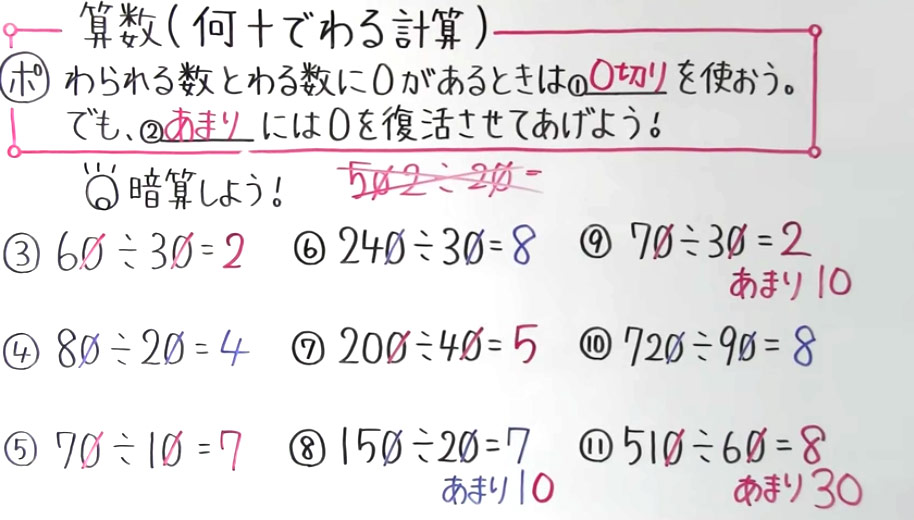 算数(何十でわる計算)
ポ わられる数とわる数に0があるときは①0切りを使おう。
でも、②あまりには0を復活させてあげよう!
暗算しよう! 502÷20=
③ 60÷30=2 ⑥ 240÷30=8 ⑨ 70÷30=2
あまり10
④ 80÷20=4 ⑦ 200÷40=5 ⑩ 720÷90=8
⑤ 70÷10=7 ⑧ 150÷20=7 ⑪ 510÷60=8
あまり10 あまり30